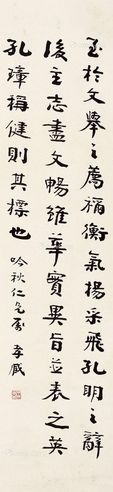 至於文舉之薦禰衡氣揚采飛孔明之辭
後主志盡文暢雖華實異旨並表之英
孔璋稱健則其標也 吟秋仁兄屬 孝臧